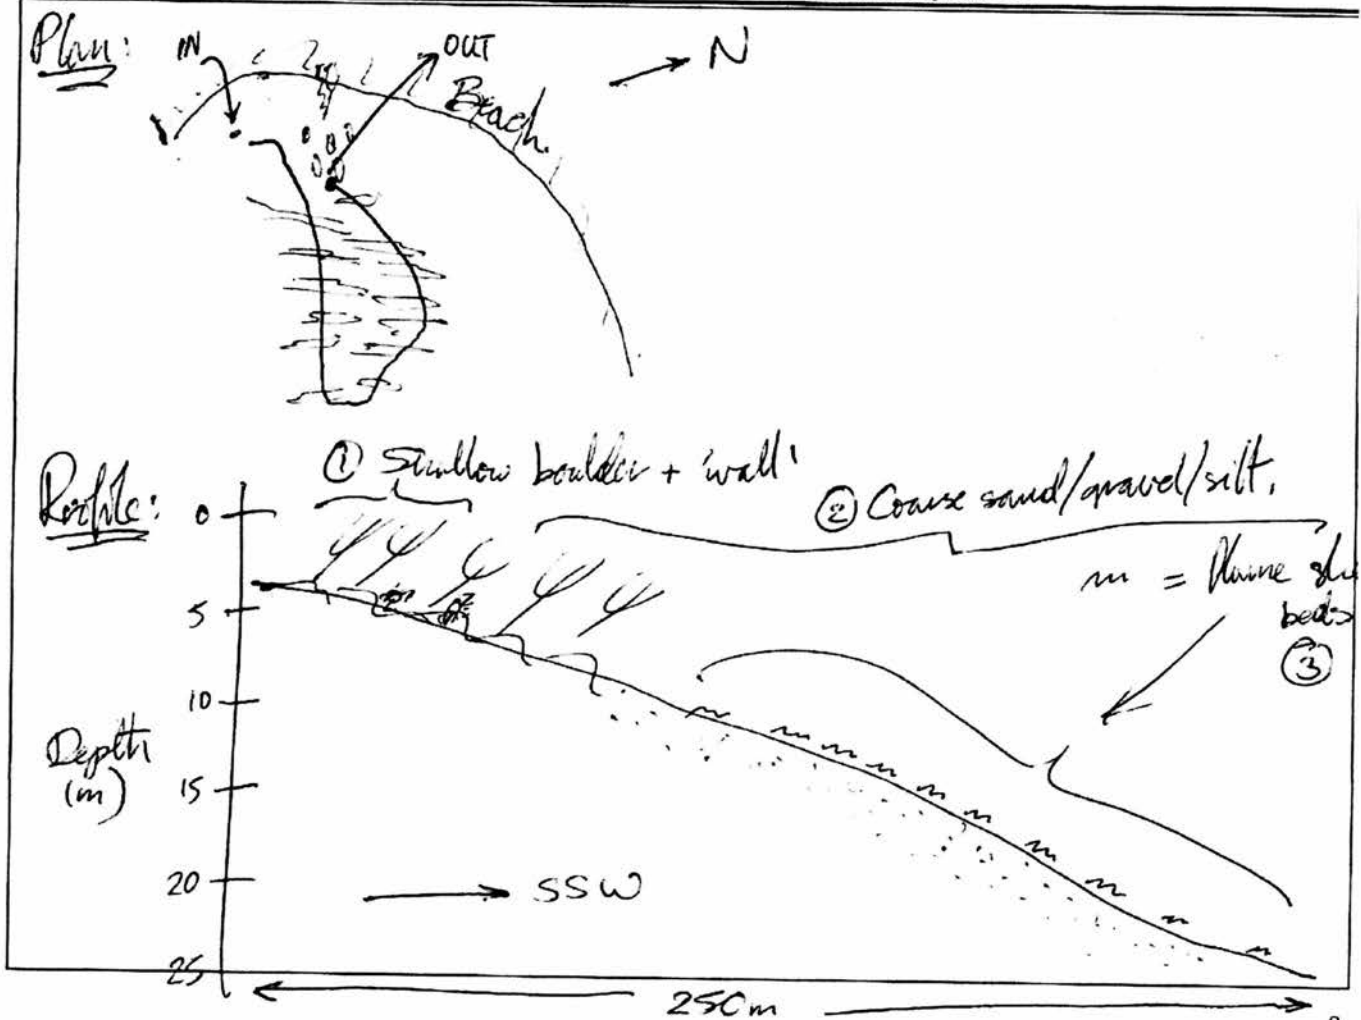 Plan:
IN
OUT
N
Beach.
Profile:
① Shallow boulder + 'wall'
② Coarse sand/gravel/silt.
m =
beds
③
0
5
10
15
20
25
Depth
(m)
SSW
250m